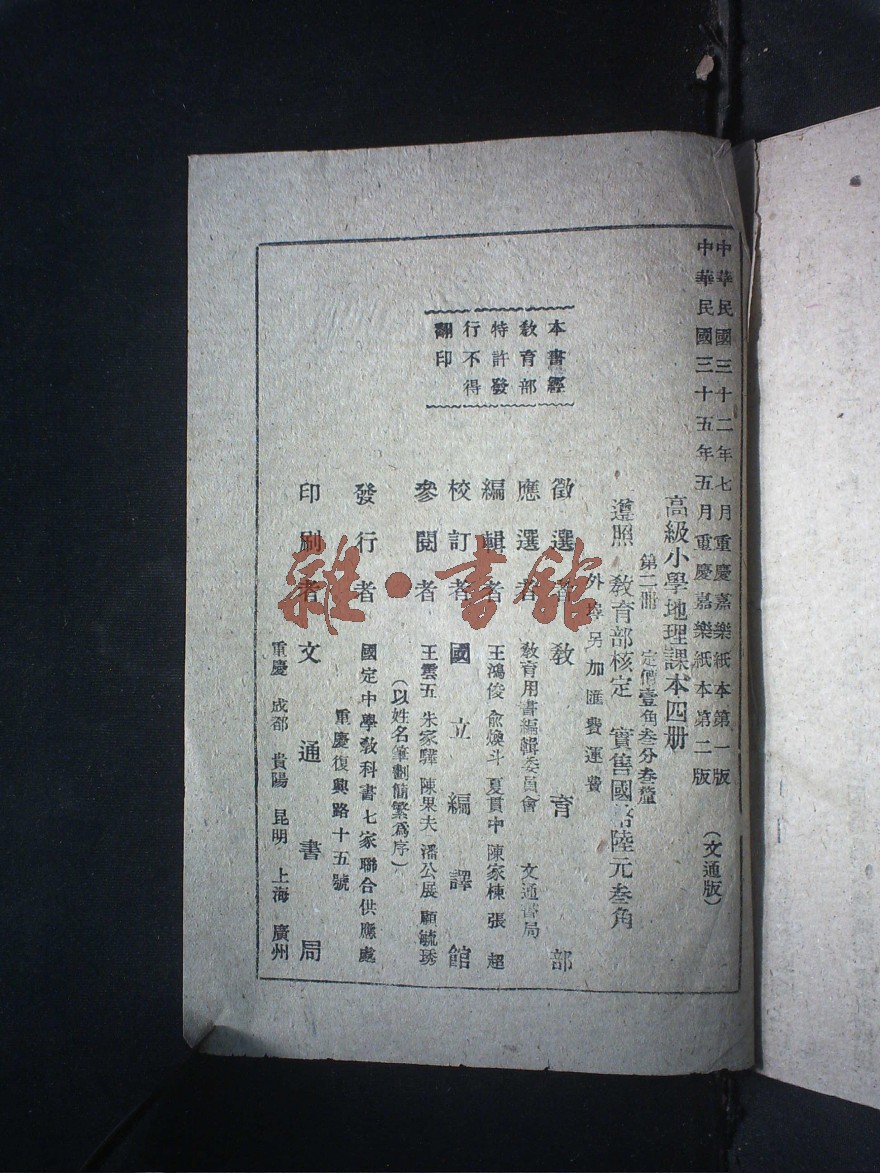 中華民國三十二年七月重慶嘉樂紙本第一版
中華民國三十五年五月重慶嘉樂紙本第二版
(文通版)
高級小學地理課本四册
第二冊 定價壹角叁分叁釐
遵照 教育部核定 實售國幣陸元叁角
外埠另加匯費運費
本書經
教育部
特許發
行不得
翻印
徵選者 教育部
應選者 教育用書編輯委員會 文通書局
編輯者 王鴻俊 俞煥斗 夏貫中 陳家棟 張超
校訂者 國立編譯館
參閱者 王雲五 朱家驊 陳果夫 潘公展 顧毓琇
(以姓名筆劃簡繁爲序)
發行者 國定中學教科書七家聯合供應處
重慶復興路十五號
印刷者 文通書局
重慶 成都 貴陽 昆明 上海 廣州
雜·書館